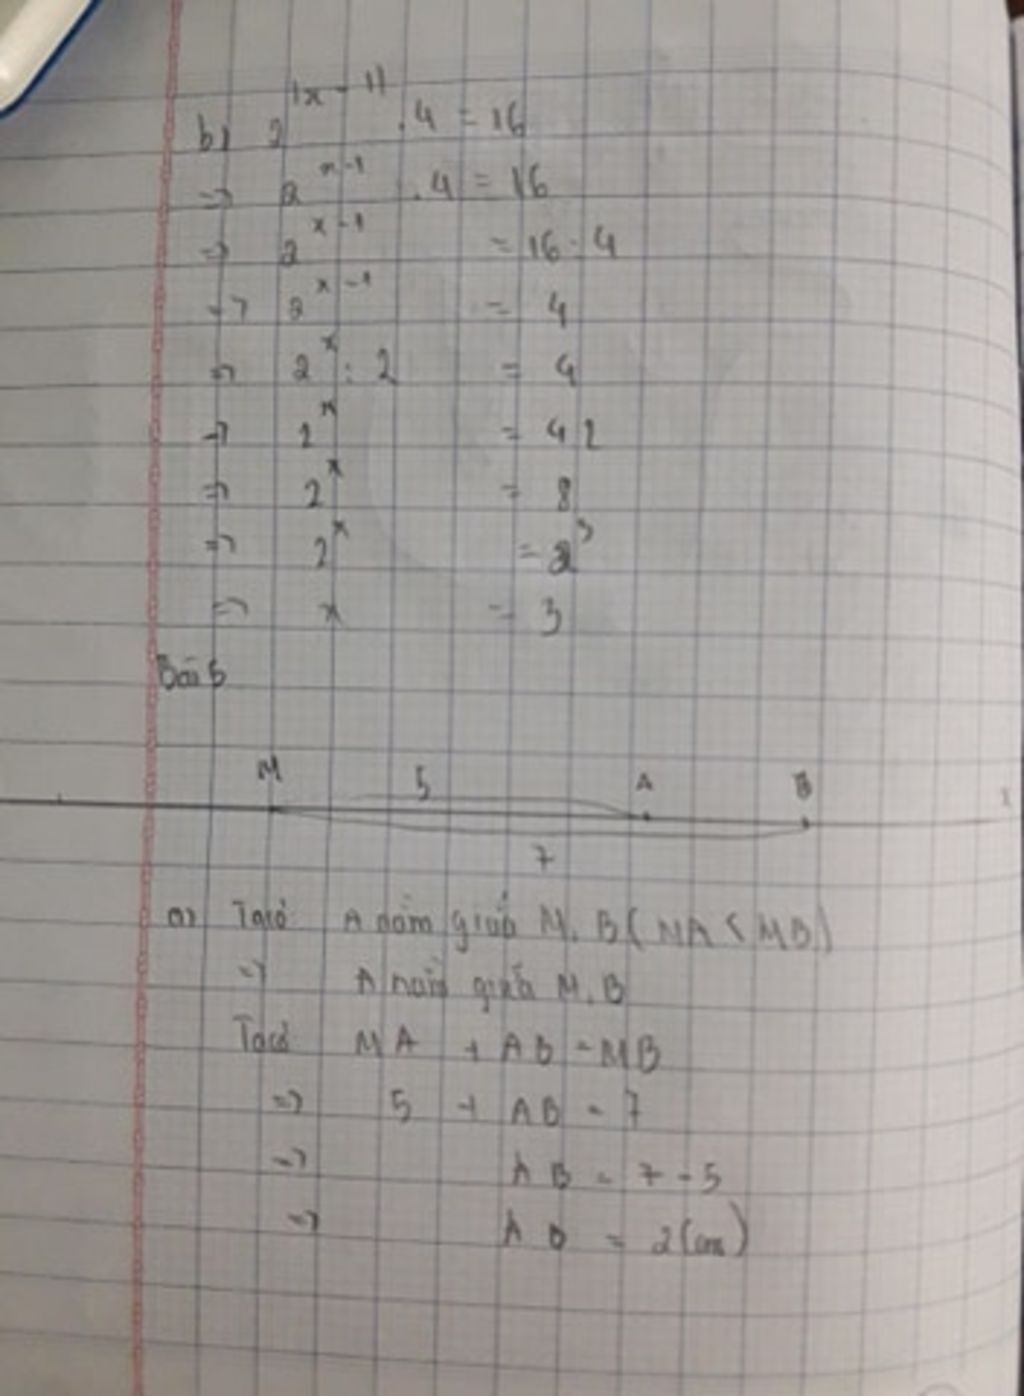 b) 2^|x-1| . 4 = 16
=> 2^x-1 . 4 = 16
=> 2^x-1 = 16 : 4
=> 2^x-1 = 4
=> 2^x : 2 = 4
=> 2^x = 4 2
=> 2^x = 8
=> 2^x = 2^3
=> x = 3
Bài 5
M 5 A B x
7
a) Ta có A nằm giữa M, B (MA < MB)
=> A nằm giữa M, B
Ta có MA + AB = MB
=> 5 + AB = 7
=> AB = 7 - 5
=> AB = 2 (cm)